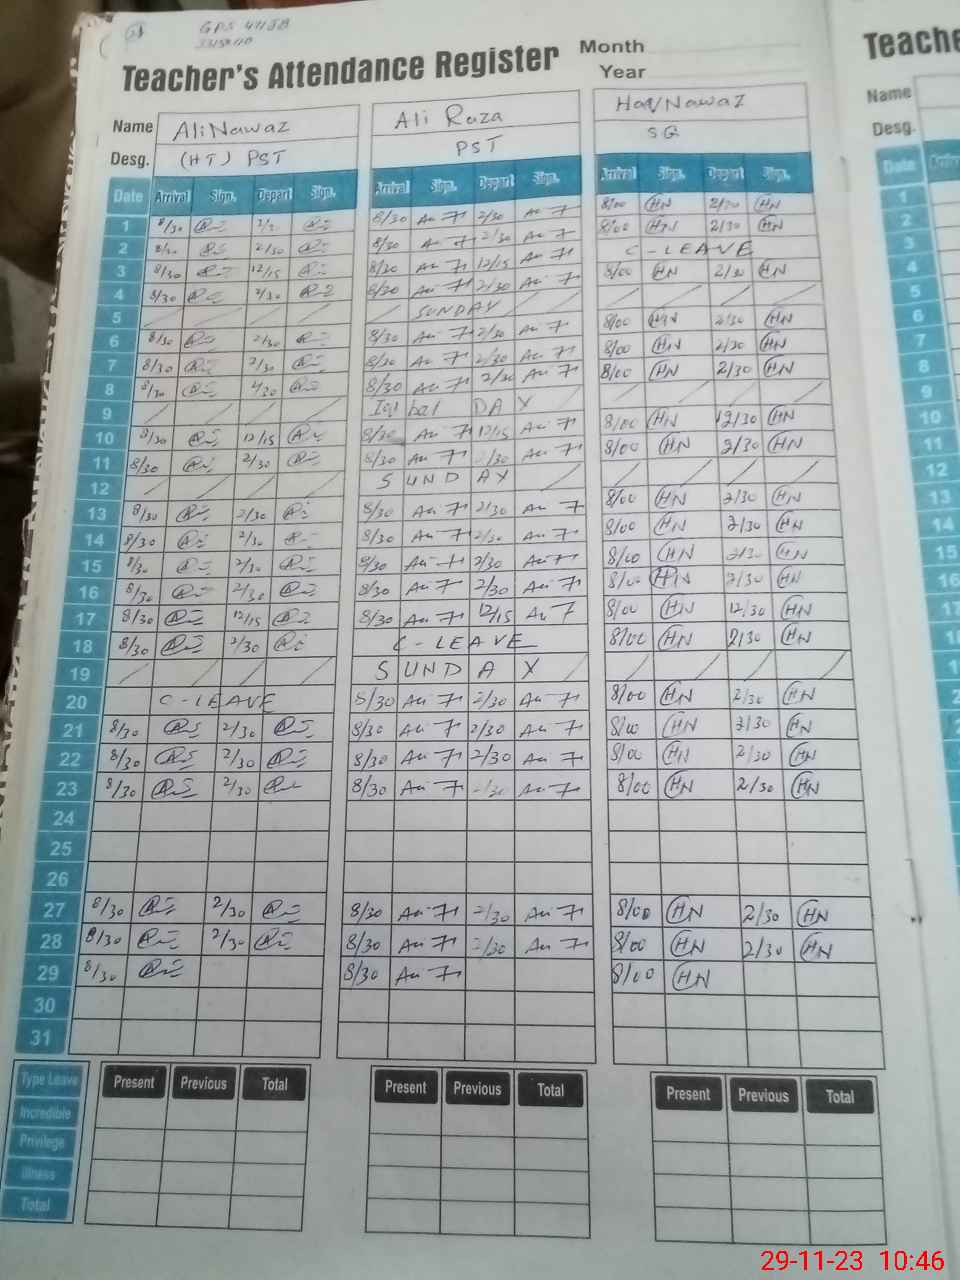 GPS 47/SB
Teacher's Attendance Register Month Teache
Year
Name Ali Nawaz Ali Raza Haq Nawaz Name
Desg. (HT) PST PST SG Desg.
Date Arrival Sign. Depart Sign. Arrival Sign. Depart Sign. Arrival Sign. Depart Sign. Date
1 8/30 8/30 2/30 8/00 HN 2/30 HN 1
2 2/30 8/30 2/30 8/00 HN 2/30 HN 2
3 8/30 12/15 8/30 12/15 C-LEAVE 3
4 8/30 2/30 8/30 2/30 8/00 HN 2/30 HN 4
5 SUNDAY 5
6 8/30 2/30 8/30 2/30 8/00 HN 2/30 HN 6
7 8/30 2/30 8/30 2/30 8/00 HN 2/30 HN 7
8 8/30 2/30 8/30 2/30 8/00 HN 2/30 HN 8
9 Iqbal DAY 9
10 8/30 12/15 8/30 12/15 8/00 HN 12/30 HN 10
11 8/30 2/30 8/30 2/30 8/00 HN 2/30 HN 11
12 SUNDAY 12
13 8/30 2/30 8/30 2/30 8/00 HN 2/30 HN 13
14 8/30 2/30 8/30 2/30 8/00 HN 2/30 HN 14
15 8/30 2/30 8/30 2/30 8/00 HN 2/30 HN 15
16 8/30 2/30 8/30 2/30 8/00 HN 2/30 HN 16
17 8/30 12/15 8/30 12/15 8/00 HN 12/30 HN 17
18 8/30 2/30 C-LEAVE 8/00 HN 2/30 HN 18
19 SUNDAY
20 C-LEAVE 8/30 2/30 8/00 HN 2/30 HN
21 8/30 2/30 8/30 2/30 8/00 HN 2/30 HN
22 8/30 2/30 8/30 2/30 8/00 HN 2/30 HN
23 8/30 2/30 8/30 8/00 HN 2/30 HN
24
25
26
27 8/30 2/30 8/30 2/30 8/00 HN 2/30 HN
28 8/30 2/30 8/30 2/30 8/00 HN 2/30 HN
29 8/30 8/30 8/00 HN
30
31
Type Leave Present Previous Total Present Previous Total Present Previous Total
Incredible
Privilege
Illness
Total
29-11-23 10:46